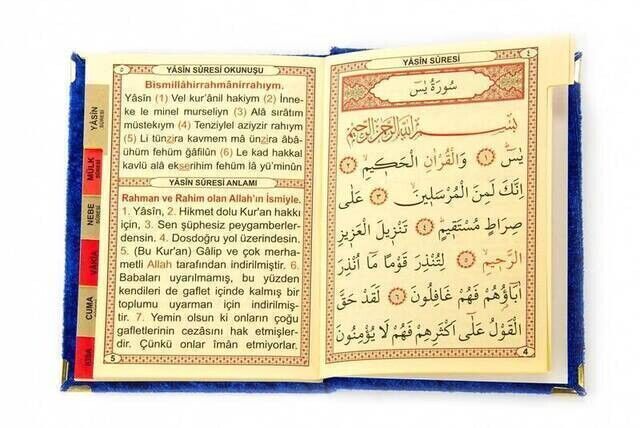 YÂSİN SÛRESİ
٤
سُورَةُ يٰسٓ
بِسْمِ اللّٰهِ الرَّحْمٰنِ الرَّحِيمِ
يٰسٓ ﴿١﴾ وَالْقُرْاٰنِ الْحَك۪يمِ ﴿٢﴾
اِنَّكَ لَمِنَ الْمُرْسَل۪ينَ ﴿٣﴾ عَلٰى
صِرَاطٍ مُسْتَق۪يمٍ ﴿٤﴾ تَنْز۪يلَ الْعَز۪يزِ
الرَّح۪يمِ ﴿٥﴾ لِتُنْذِرَ قَوْمًا مَٓا اُنْذِرَ
اٰبَٓاؤُ۬هُمْ فَهُمْ غَافِلُونَ ﴿٦﴾ لَقَدْ حَقَّ
الْقَوْلُ عَلٰٓى اَكْثَرِهِمْ فَهُمْ لَا يُؤْمِنُونَ
4
٥
YÂSİN SÛRESİ OKUNUŞU
Bismillâhirrahmânirrahıym.
Yâsîn (1) Vel kur'ânil hakiym (2) İnne-
ke le minel murseliyn (3) Alâ sıratım
müstekıym (4) Tenziylel aziyzir rahıym
(5) Li tünzira kavmem mâ ünzira âbâ-
ühüm fehüm ğâfilûn (6) Le kad hakkal
kavlü alâ ekserihim fehüm lâ yü'minûn
YÂSÎN SÛRESİ ANLAMI
Rahman ve Rahim olan Allah'ın İsmiyle.
1. Yâsîn, 2. Hikmet dolu Kur'an hakkı
için, 3. Sen şüphesiz peygamberler-
densin. 4. Dosdoğru yol üzerindesin.
5. (Bu Kur'an) Gâlip ve çok merha-
metli Allah tarafından indirilmiştir. 6.
Babaları uyarılmamış, bu yüzden
kendileri de gaflet içinde kalmış bir
toplumu uyarman için indirilmiş-
tir. 7. Yemin olsun ki onların çoğu
gafletlerinin cezasını hak etmişler-
dir. Çünkü onlar îmân etmiyorlar.
5
YÂSİN
SÛRESİ
MÜLK
SÛRESİ
NEBE
SÛRESİ
VÂKIA
CUMA
KISA